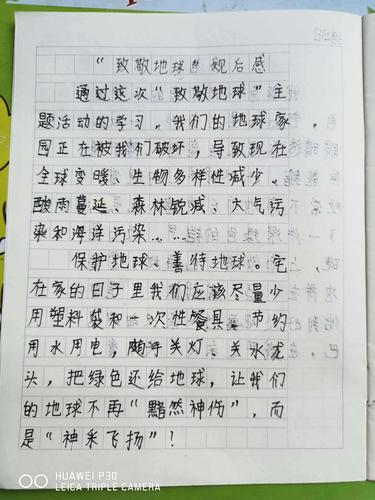 “致敬地球”观后感
通过这次“致敬地球”主
题活动的学习，我们的地球家
园正在被我们破坏，导致现在
全球变暖、生物多样性减少、
酸雨蔓延、森林锐减、大气污
染和海洋污染……
保护地球，善待地球。宅
在家的日子里我们应该尽量少
用塑料袋和一次性餐具，节约
用水用电，随手关灯、关水龙
头，把绿色还给地球，让我们
的地球不再“黯然神伤”，而
是“神采飞扬”？
HUAWEI P30
LEICA TRIPLE CAMERA